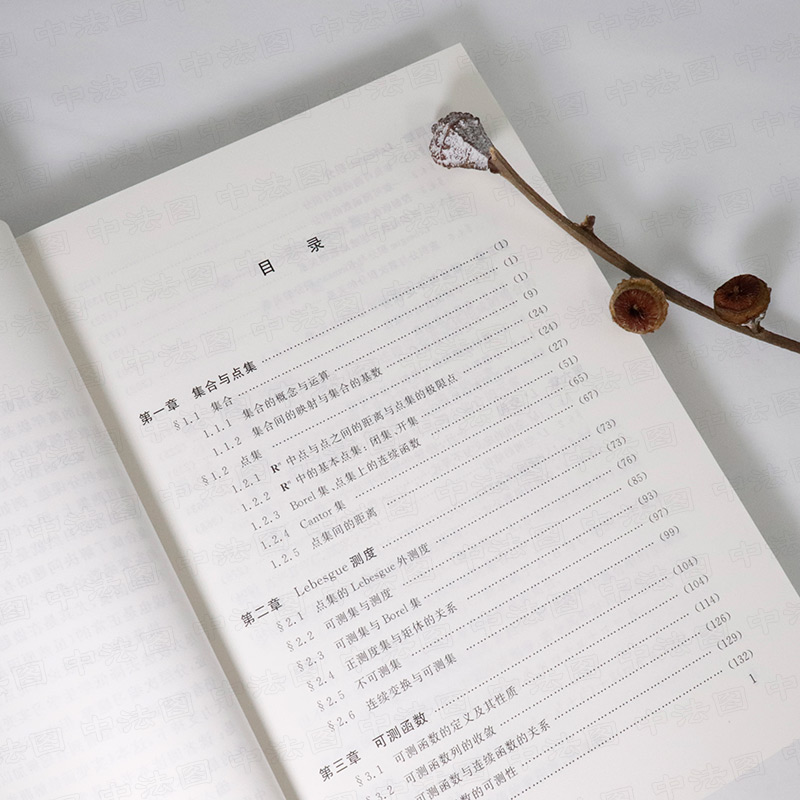 目 录
第一章 集合与点集 (1)
§1.1 集合 (1)
1.1.1 集合的概念与运算 (1)
1.1.2 集合间的映射与集合的基数 (9)
§1.2 点集 (24)
1.2.1 Rⁿ 中点与点之间的距离与点集的极限点 (24)
1.2.2 Rⁿ 中的基本点集:闭集、开集 (27)
1.2.3 Borel 集、点集上的连续函数 (51)
1.2.4 Cantor 集 (65)
1.2.5 点集间的距离 (67)
第二章 Lebesgue 测度 (73)
§2.1 点集的 Lebesgue 外测度 (73)
§2.2 可测集与测度 (76)
§2.3 可测集与 Borel 集 (85)
§2.4 正测度集与矩体的关系 (93)
§2.5 不可测集 (97)
§2.6 连续变换与可测集 (99)
第三章 可测函数 (104)
§3.1 可测函数的定义及其性质 (104)
§3.2 可测函数列的收敛 (114)
可测函数与连续函数的关系 (126)
数的可测性 (129)
(132)
1
中法图